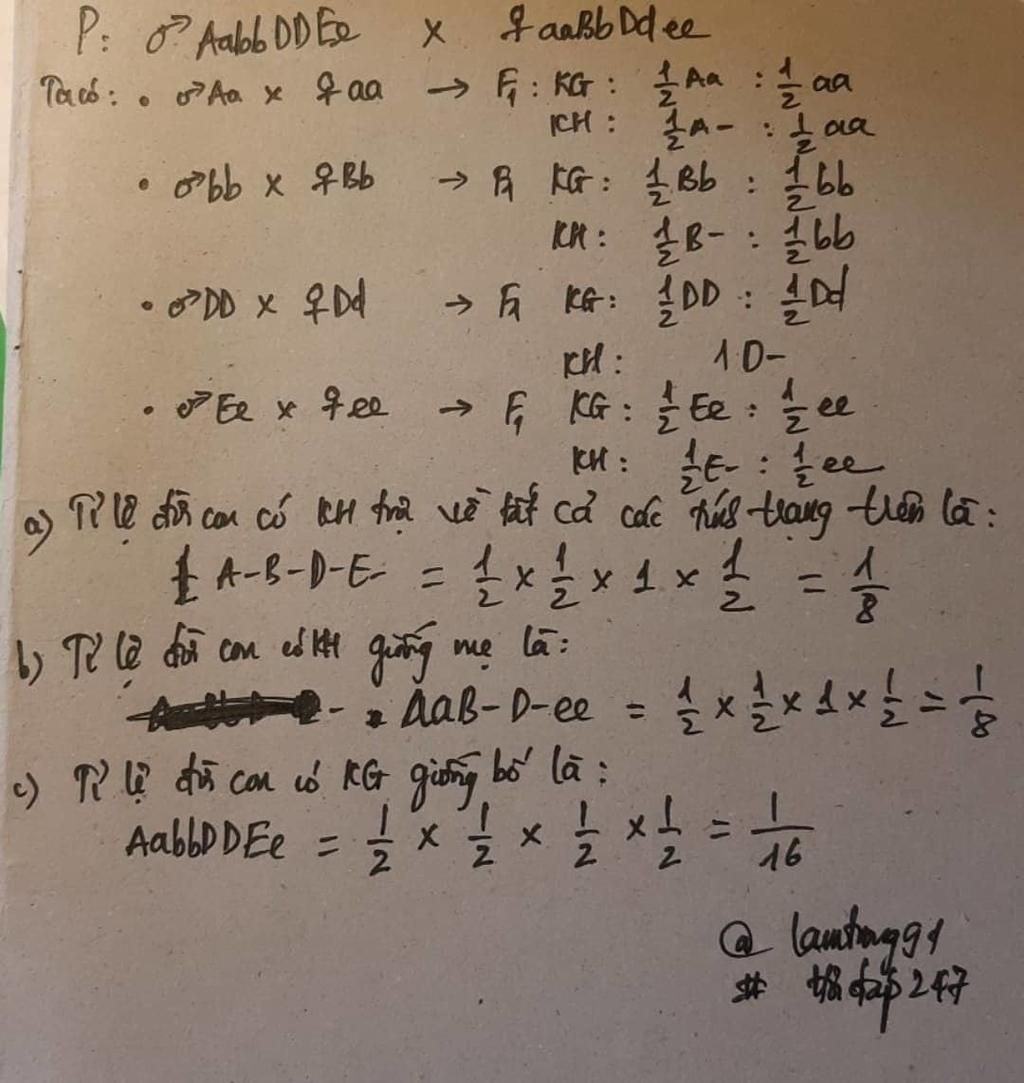 P: ♂AabbDDEe × ♀aaBbDdee
Ta có: • ♂Aa × ♀aa → F₁: KG: 1/2 Aa : 1/2 aa
KH: 1/2 A- : 1/2 aa
• ♂bb × ♀Bb → F₁ KG: 1/2 Bb : 1/2 bb
KH: 1/2 B- : 1/2 bb
• ♂DD × ♀Dd → F₁ KG: 1/2 DD : 1/2 Dd
KH: 1 D-
• ♂Ee × ♀ee → F₁ KG: 1/2 Ee : 1/2 ee
KH: 1/2 E- : 1/2 ee
a) Tỉ lệ đời con có KH trội về tất cả các tính trạng trên là:
A-B-D-E- = 1/2 × 1/2 × 1 × 1/2 = 1/8
b) Tỉ lệ đời con có KH giống mẹ là:
aaB-D-ee = 1/2 × 1/2 × 1 × 1/2 = 1/8
c) Tỉ lệ đời con có KG giống bố là:
AabbDDEe = 1/2 × 1/2 × 1/2 × 1/2 = 1/16
@
# 247